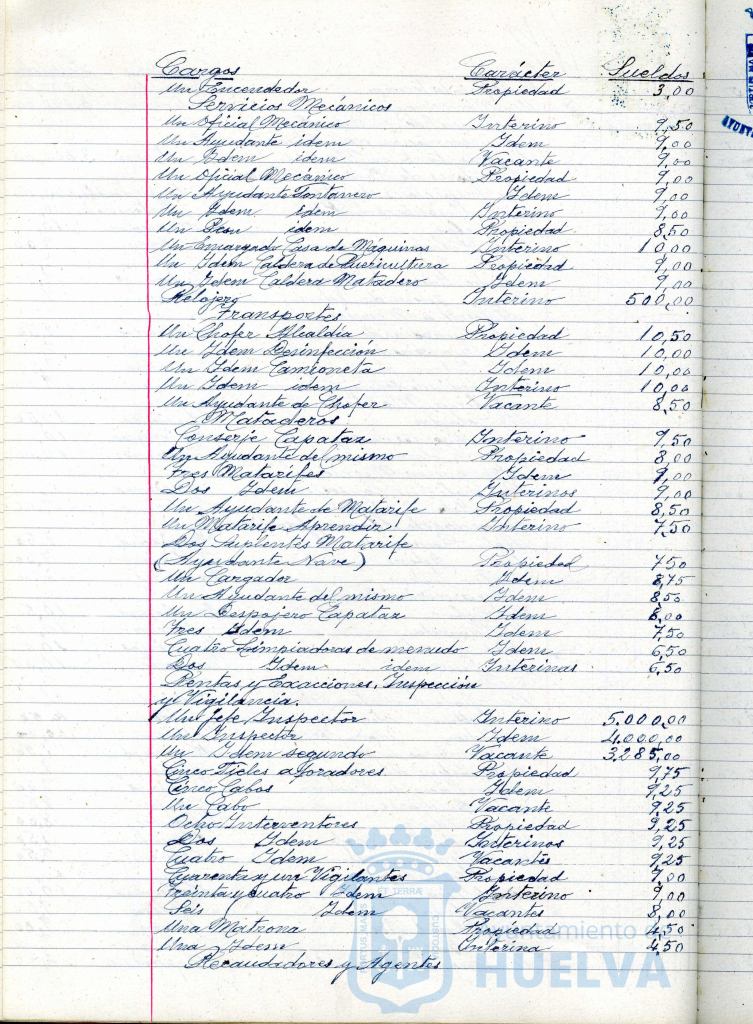 Cargos Carácter Sueldos
Un Encendedor Propiedad 3,00
Servicios Mecánicos
Un Oficial Mecánico Interino 9,50
Un Ayudante idem Idem 9,00
Un Idem idem Vacante 9,00
Un Oficial Mecánico Propiedad 9,00
Un Ayudante Fontanero Idem 9,00
Un Idem idem Interino 9,00
Un Peon idem Propiedad 8,50
Un Encargado Casa de Máquinas Interino 10,00
Un Idem Caldera de Puericultura Propiedad 9,00
Un Idem Caldera Matadero Idem 9,00
Relojero Interino 500,00
Transportes
Un Chofer Alcaldía Propiedad 10,50
Un Idem Desinfección Idem 10,00
Un Idem Camioneta Idem 10,00
Un Idem idem Interino 10,00
Un Ayudante de Chofer Vacante 8,50
Mataderos
Conserje Capataz Interino 9,50
Un Ayudante del mismo Propiedad 8,00
Tres Matarifes Idem 9,00
Dos Idem Interinos 9,00
Un Ayudante de Matarife Propiedad 8,50
Un Matarife Aprendiz Interino 7,50
Dos Suplentes Matarife
(Ayudante Nave) Propiedad 7,50
Un Cargador Idem 8,75
Un Ayudante del mismo Idem 8,50
Un Despojero Capataz Idem 8,00
Tres Idem Idem 7,50
Cuatro Limpiadoras de menudo Idem 6,50
Dos Idem idem Interinas 6,50
Rentas y Exacciones, Inspección
y Vigilancia.
Un Jefe Inspector Interino 5.000,00
Un Inspector Idem 4.000,00
Un Idem segundo Vacante 3.285,00
Cinco Fieles aforadores Propiedad 9,75
Cinco Cabos Idem 9,25
Un Cabo Vacante 9,25
Ocho Interventores Propiedad 9,25
Dos Idem Interinos 9,25
Cuatro Idem Vacantes 9,25
Cuarenta y un Vigilantes Propiedad 9,00
Treinta y cuatro Idem Interino 9,00
Seis Idem Vacantes 8,00
Una Matrona Propiedad 4,50
Una Idem Interina 4,50
Recaudadores y Agentes
HUELVA